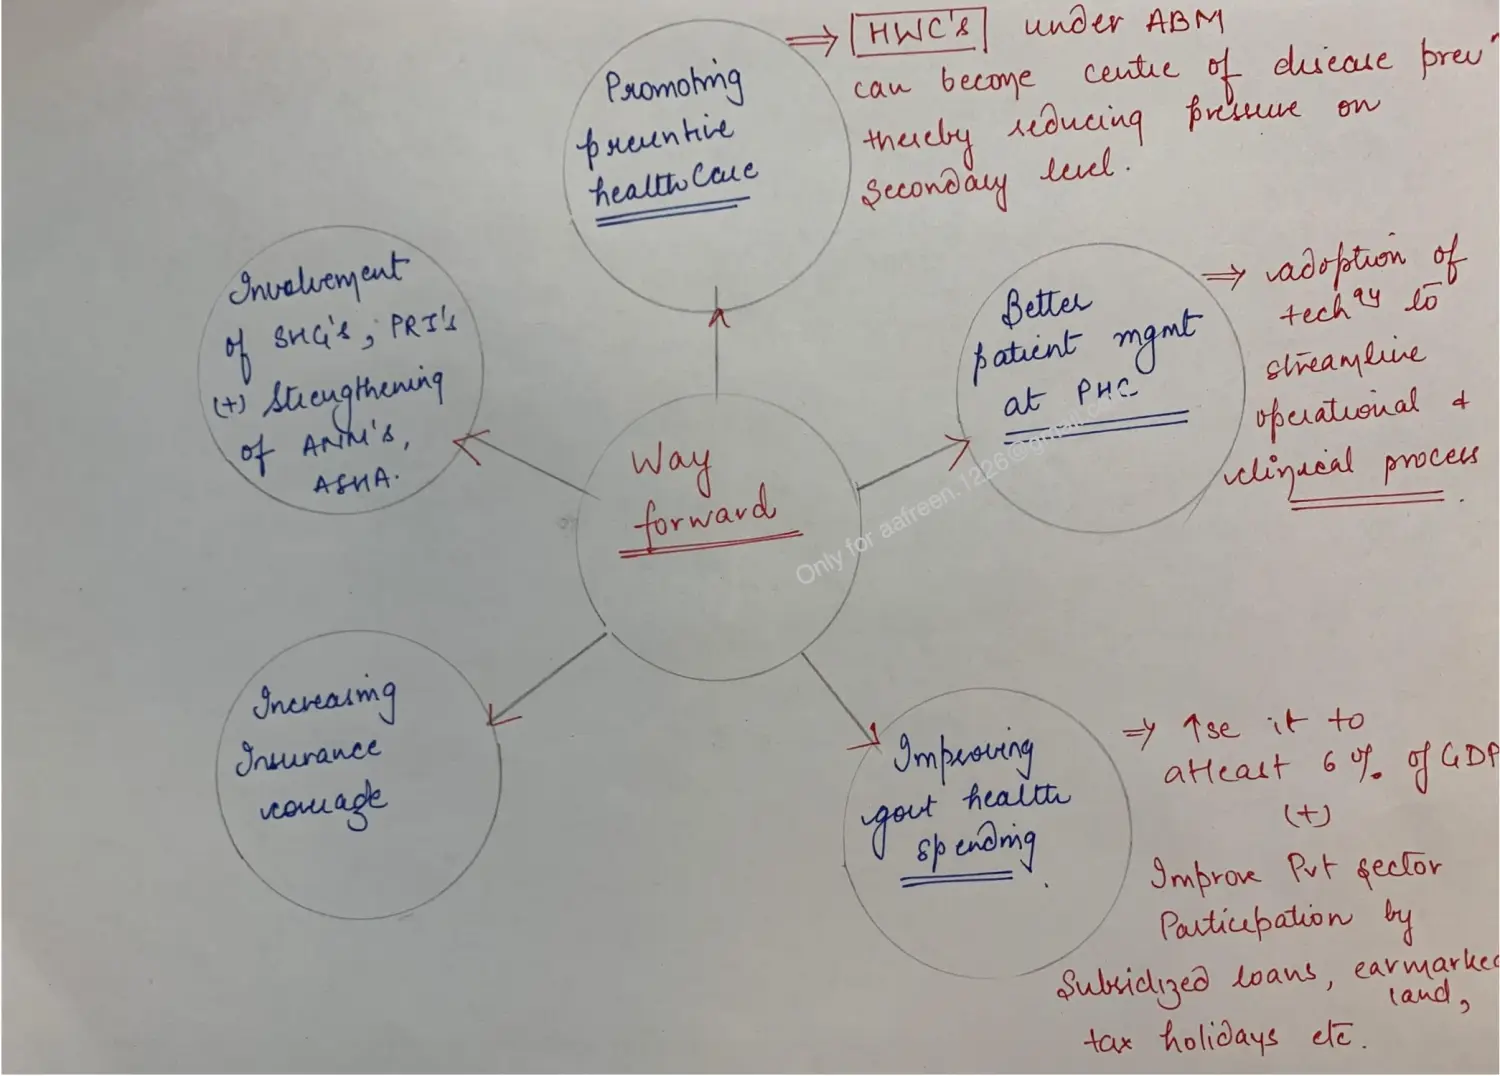 Promoting
preventive
healthCare
⇒ HWC's under ABM
can become centre of disease prevn
thereby reducing pressure on
Secondary level.
Involvement
of SHG's, PRI's
(+) Strengthening
of ANM's,
ASHA.
Better
patient mgmt
at PHC
⇒ adoption of
techgy to
streamline
operational &
clinical process.
Way
forward
Only for aafreen.1226@gmail.c
Increasing
Insurance
coverage
Improving
govt health
spending.
⇒ ↑se it to
atleast 6 % of GDP
(+)
Improve Pvt sector
Participation by
Subsidized loans, earmarked
land,
tax holidays etc.